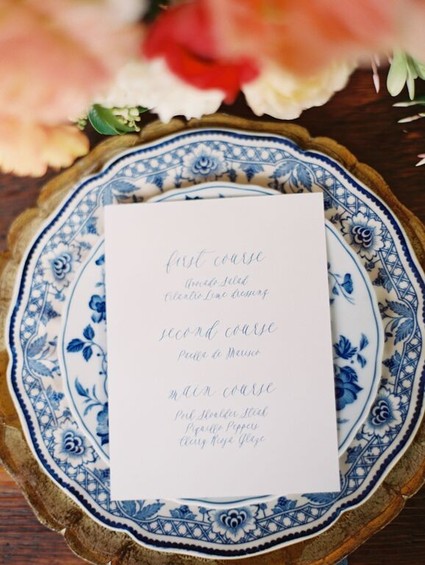 first course
Avocado Salad
Cilantro Lime dressing
second course
Paella de Marisco
main course
Pork Shoulder Steak
Piquillo Peppers
Cherry Rioja Glaze